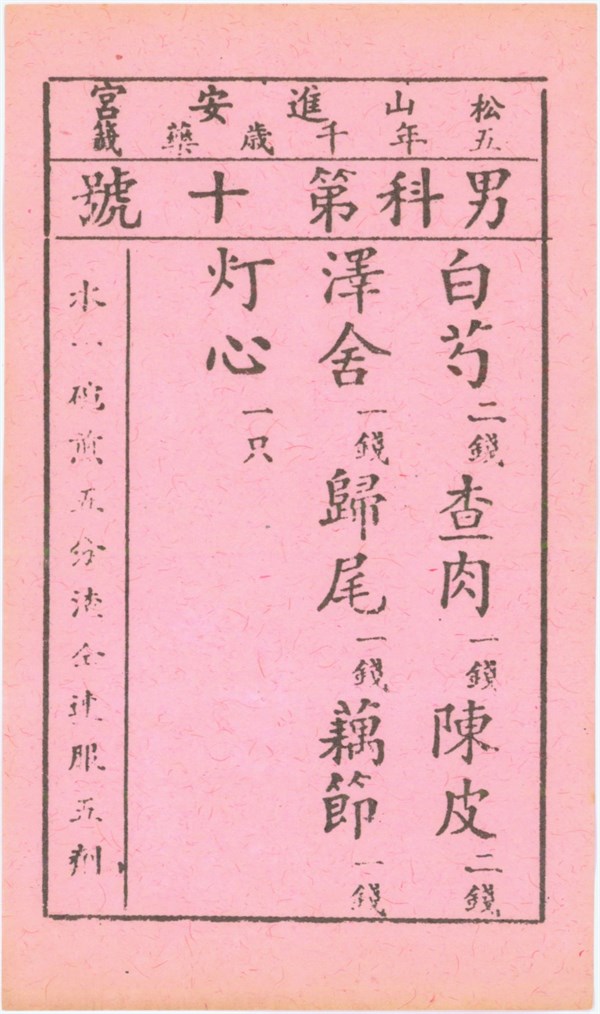 松山進安宮
五年千歲藥籤
男科第十號
白芍二錢查肉一錢陳皮二錢
澤舍一錢歸尾一錢藕節一錢
灯心一只
水碗煎五分渣仝連服五剂